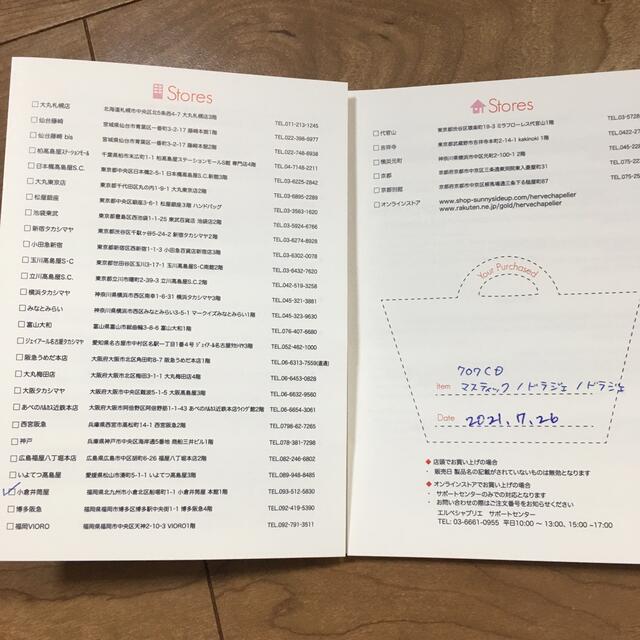 Stores
大丸札幌店 北海道札幌市中央区北5条西4-7 大丸札幌店3階 TEL.011-213-1245
仙台藤崎 宮城県仙台市青葉区一番町3-2-17 藤崎本館1階 TEL.022-398-6977
仙台藤崎 bis 宮城県仙台市青葉区一番町3-2-17 藤崎本館2階 TEL.022-748-6938
柏高島屋ステーションモール 千葉県柏市末広町1-1 柏高島屋ステーションモールS館 専門店4階 TEL.04-7148-2211
日本橋高島屋S.C. 東京都中央区日本橋2-5-1 日本橋高島屋S.C.新館3階 TEL.03-6225-2842
大丸東京店 東京都千代田区丸の内1-9-1 大丸東京店2階 TEL.03-6895-2289
松屋銀座 東京都中央区銀座3-6-1 松屋銀座3階 ハンドバッグ TEL.03-3563-1620
池袋東武 東京都豊島区西池袋1-1-25 東武百貨店 池袋店2階 TEL.03-5924-6766
新宿タカシマヤ 東京都渋谷区千駄ヶ谷5-24-2 新宿タカシマヤ2階 TEL.03-6274-8928
小田急新宿 東京都新宿区西新宿1-1-3 小田急百貨店新宿店3階 TEL.03-6302-0078
玉川高島屋S・C 東京都世田谷区玉川3-17-1 玉川高島屋S・C南館2階 TEL.03-6432-7620
立川高島屋S.C. 東京都立川市曙町2-39-3 立川高島屋S.C.2階 TEL.042-519-3258
横浜タカシマヤ 神奈川県横浜市西区南幸1-6-31 横浜タカシマヤ3階 TEL.045-321-3881
みなとみらい 神奈川県横浜市西区みなとみらい3-5-1 マークイズみなとみらい1階 TEL.045-323-9630
富山大和 富山県富山市総曲輪3-8-6 富山大和1階 TEL.076-407-6680
ジェイアール名古屋タカシマヤ 愛知県名古屋市中村区名駅一丁目1番4号 ジェイアール名古屋タカシマヤ3階 TEL.052-482-1000
阪急うめだ本店 大阪府大阪市北区角田町8-7 阪急うめだ本店1階 TEL.06-6313-7559(直通)
大丸梅田店 大阪府大阪市北区梅田3-1-1 大丸梅田店4階 TEL.06-6453-0828
大阪タカシマヤ 大阪府大阪市中央区難波5-1-5 大阪高島屋3階 TEL.06-6632-9560
あべのハルカス近鉄本店 大阪府大阪市阿倍野区阿倍野筋1-1-43 あべのハルカス近鉄本店ウイング館2階 TEL.06-6654-3061
西宮阪急 兵庫県西宮市高松町14-1 西宮阪急2階 TEL.0798-62-7265
神戸 兵庫県神戸市中央区海岸通5番地 商船三井ビル1階 TEL.078-381-7298
広島福屋八丁堀本店 広島県広島市中区胡町6-26 福屋八丁堀本店2階 TEL.082-246-6882
いよてつ高島屋 愛媛県松山市湊町5-1-1 いよてつ高島屋3階 TEL.089-948-8485
小倉井筒屋 福岡県北九州市小倉北区船場町1-1 小倉井筒屋 本館1階 TEL.093-512-5830
博多阪急 福岡県福岡市博多区博多駅中央街1-1 博多阪急4階 TEL.092-419-5390
福岡VIORO 福岡県福岡市中央区天神2-10-3 VIORO1階 TEL.092-791-3511
Stores
代官山 東京都渋谷区猿楽町19-3 ミラフローレス代官山1階 TEL.03-5728
吉祥寺 東京都武蔵野市吉祥寺本町2-14-1 kakinoki 1階 TEL.0422-2
横浜元町 神奈川県横浜市中区元町2-100-1 2階 TEL.045-22
京都 京都府京都市中京区三条通東洞院東入菱屋町31 TEL.075-22
京都別館 TEL.075-223
オンラインストア www.shop-sunnysideup.com/hervechapelier
www.rakuten.ne.jp/gold/hervechapelier
Your Purchased
707CD
Item マスティック/ドラジェ/ドラジェ
Date 2021.7.26
◆ 店頭でお買い上げの場合
・ 販売日 製品名の記載がされていないものは無効となります
◆ オンラインストアでお買い上げの場合
・ サポートセンターのみでの対応となります
・ お問い合わせの際はご注文番号をお知らせください
エルベシャプリエ サポートセンター
TEL: 03-6661-0955 平日10:00 〜 13:00、15:00 〜17:00